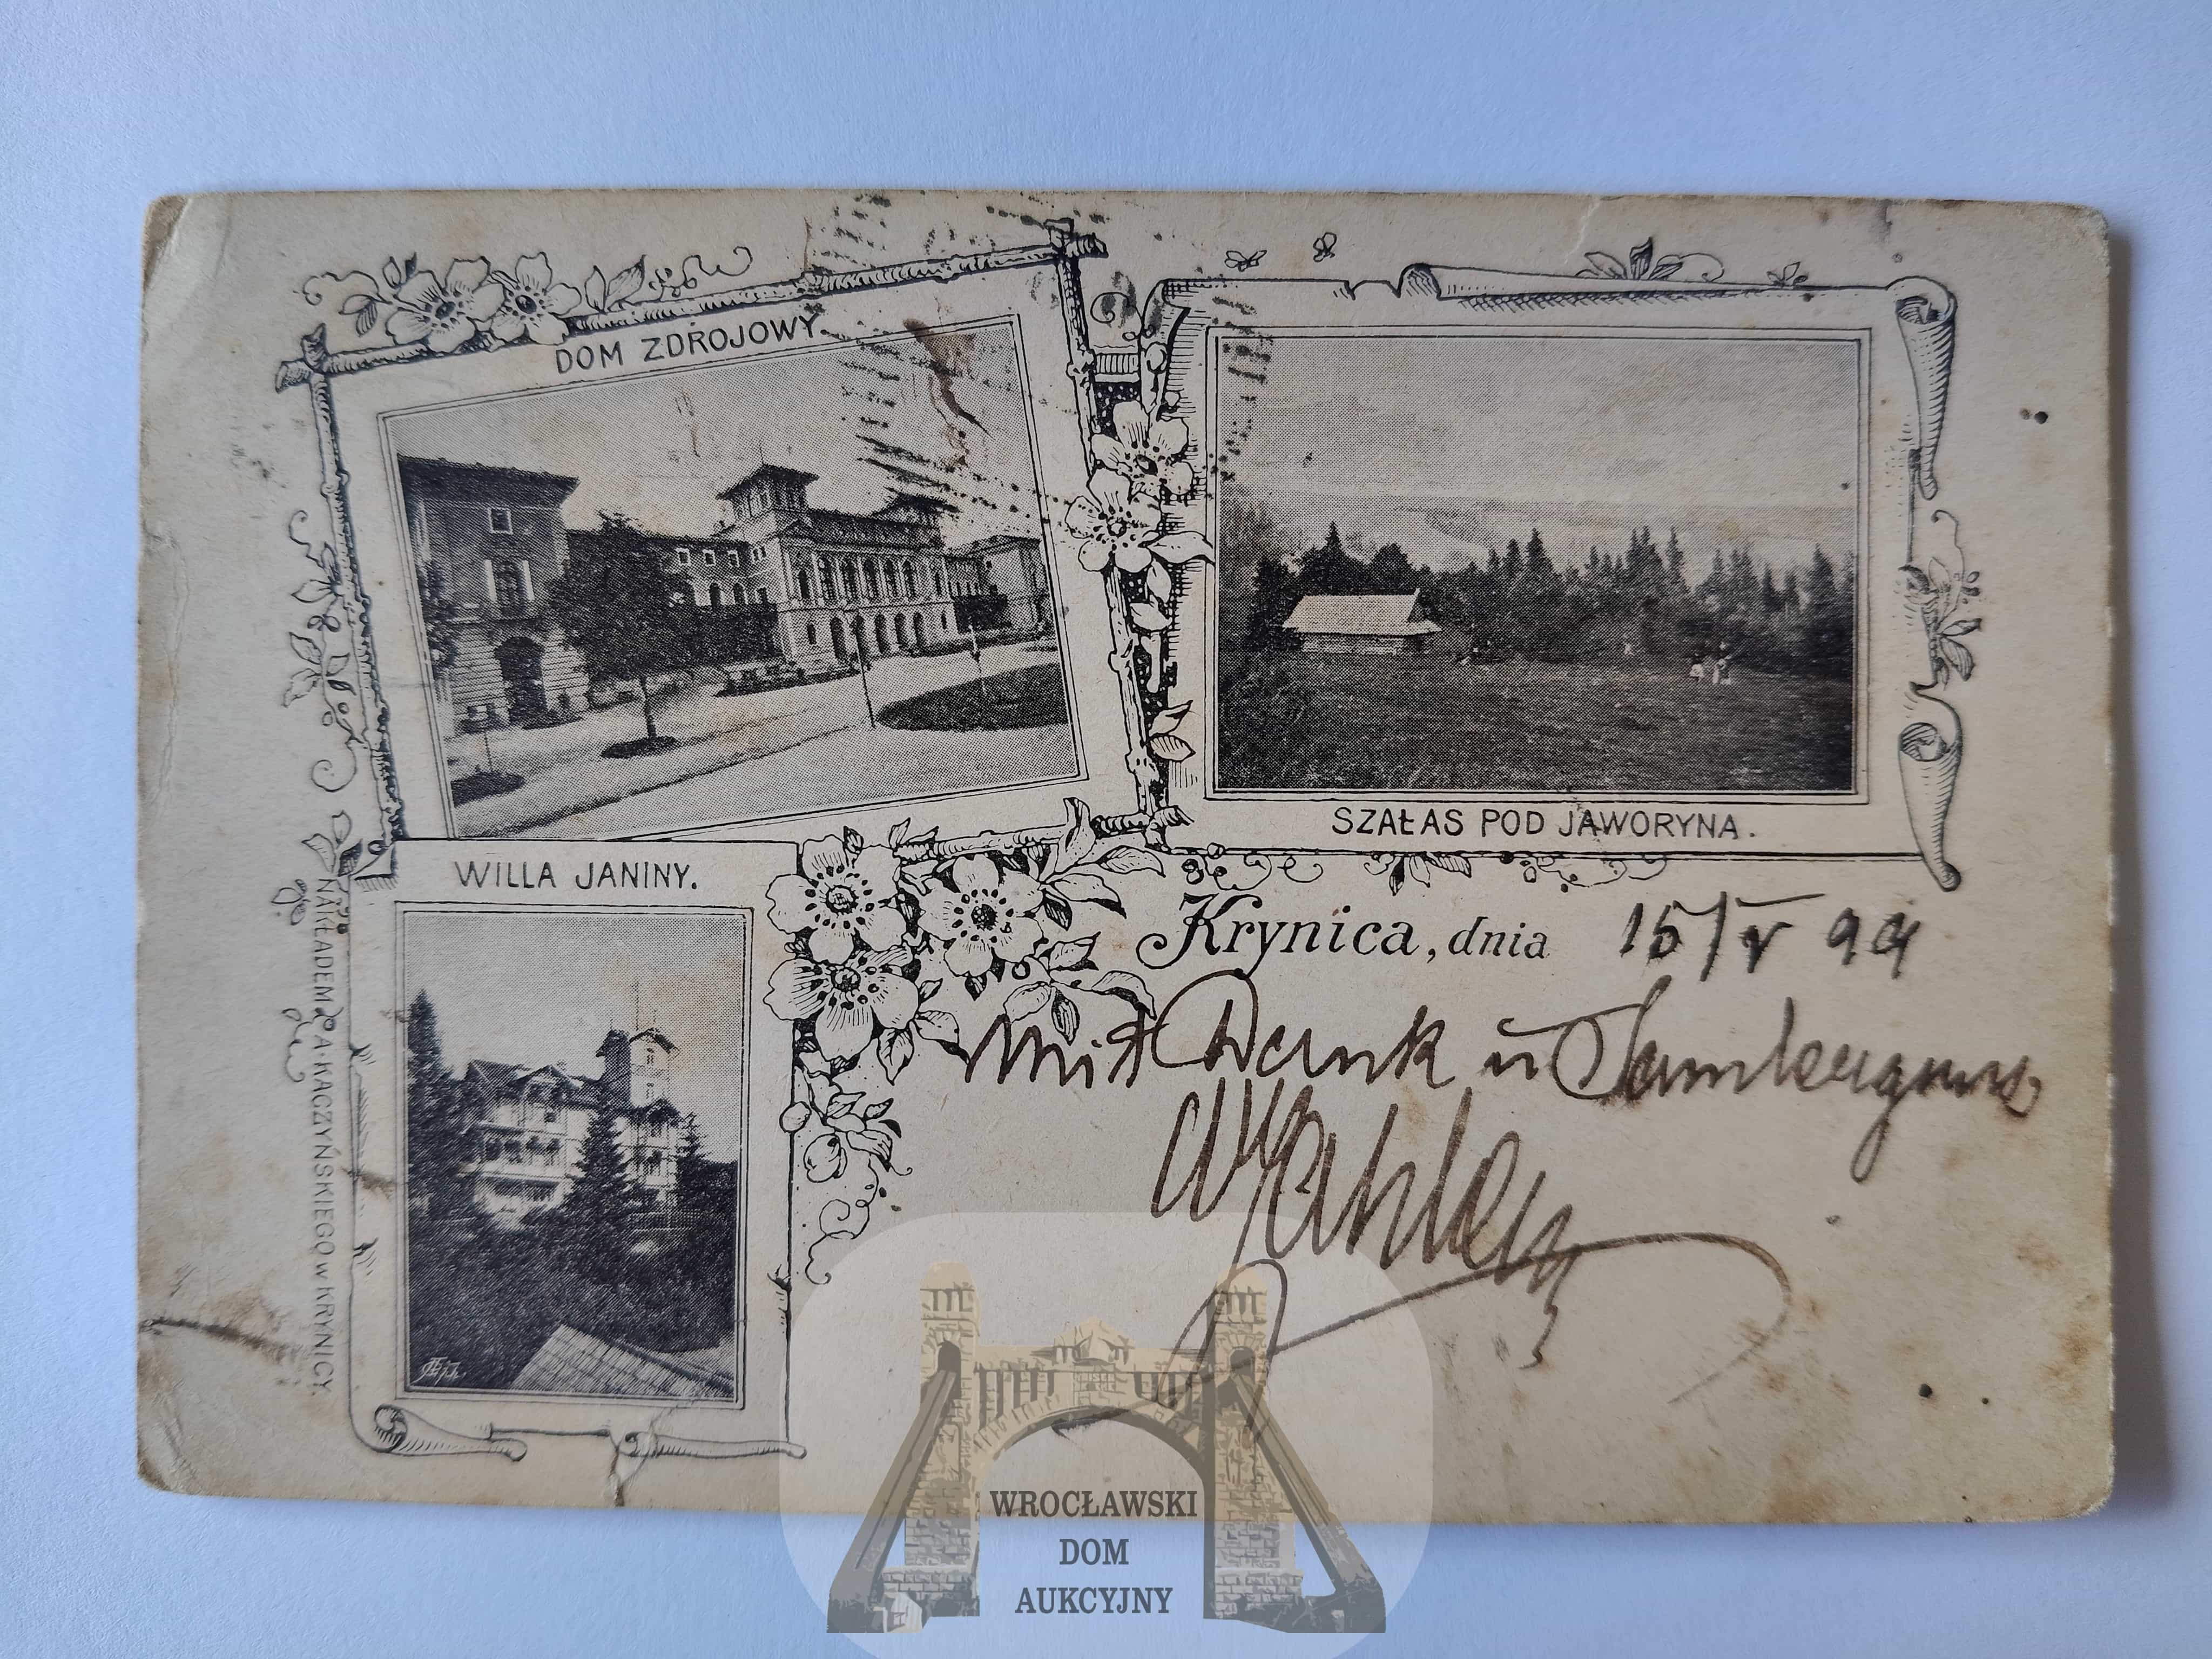 DOM ZDROJOWY.
SZAŁAS POD JAWORYNA.
WILLA JANINY.
Krynica, dnia 15/V 99
Mit Dank u
NAKŁADEM A. KACZYŃSKIEGO w KRYNICY.
WROCŁAWSKI
DOM
AUKCYJNY